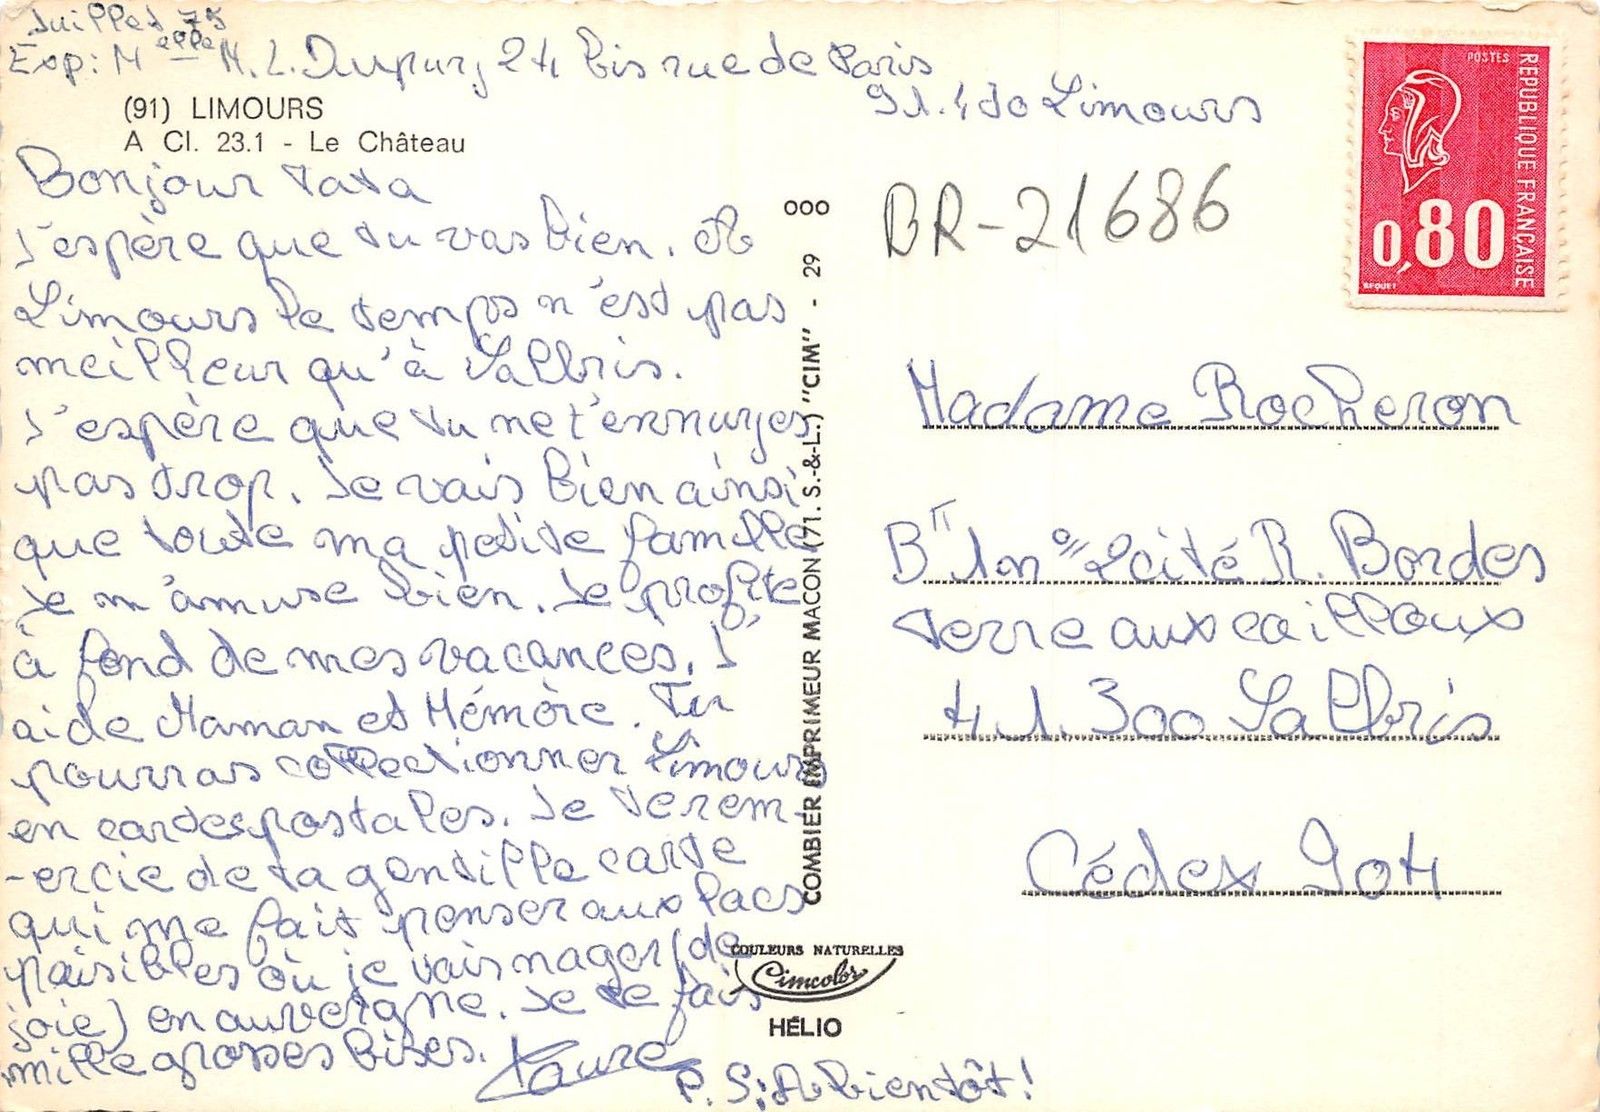 Juillet 75
Exp: M elle M. L. Dupuy, 24 bis rue de Paris
91.470 Limours
(91) LIMOURS
A Cl. 23.1 - Le Château
Bonjour Tata
J'espère que tu vas bien. A
Limours le temps n'est pas
meilleur qu'à Salbris.
J'espère que tu ne t'ennuyes
pas trop. Je vais bien ainsi
que toute ma petite famille
Je m'amuse bien. Je profite
à fond de mes vacances. J'
aide Maman et Mémère. Tu
pourras collectionner Limours
en cartes postales. Je te rem-
-ercie de ta gentille carte
qui me fait penser aux lacs
paisibles où je vais nager (de
joie) en auvergne. Je te fais
mille grosses bises.
Laure
P.S: A bientôt!
COMBIER IMPRIMEUR MACON (71. S.-&-L.) "CIM" - 29 000
COULEURS NATURELLES
Cimcolor
HÉLIO
BR-21686
POSTES
REPUBLIQUE FRANÇAISE
0,80
BEQUET
Madame Rocheron
Bt 1 n° 2 cité R. Bordes
Terre aux cailloux
41.300 Salbris
Cédex 904